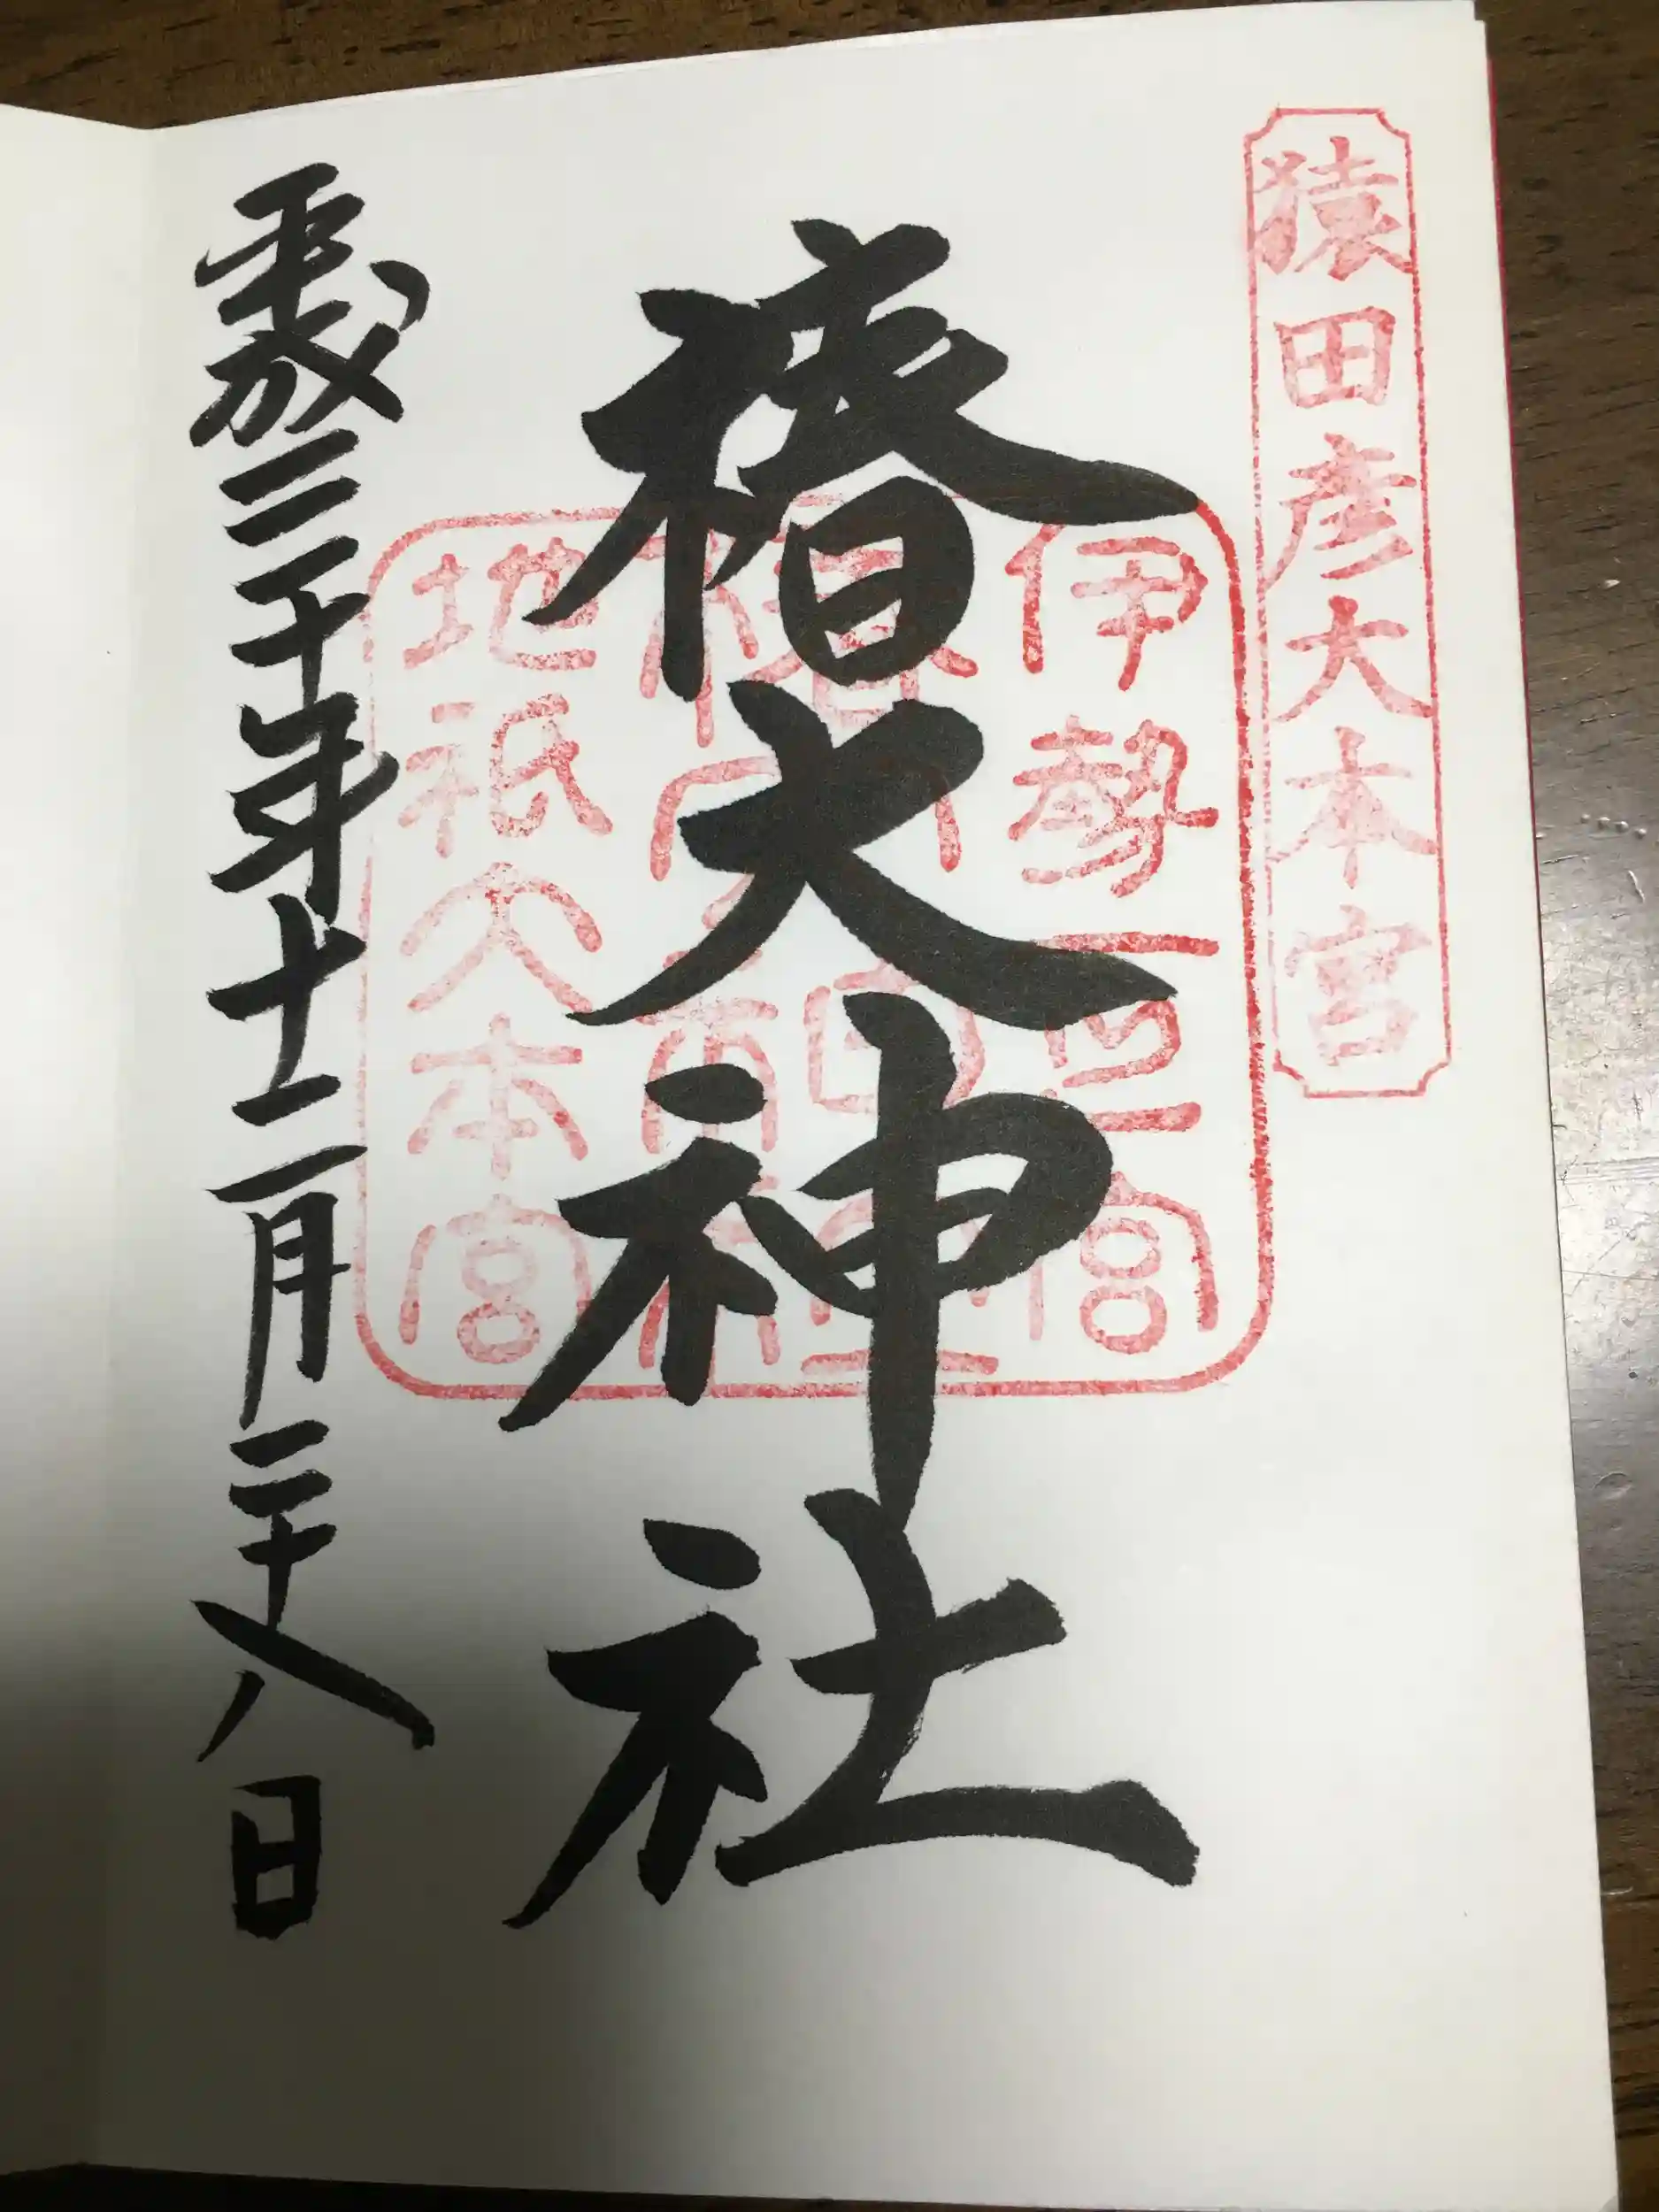 猿田彦大本宮
伊勢一之宮
椿大神社
地祇大本宮
椿大神社
平成三十年十二月二十八日